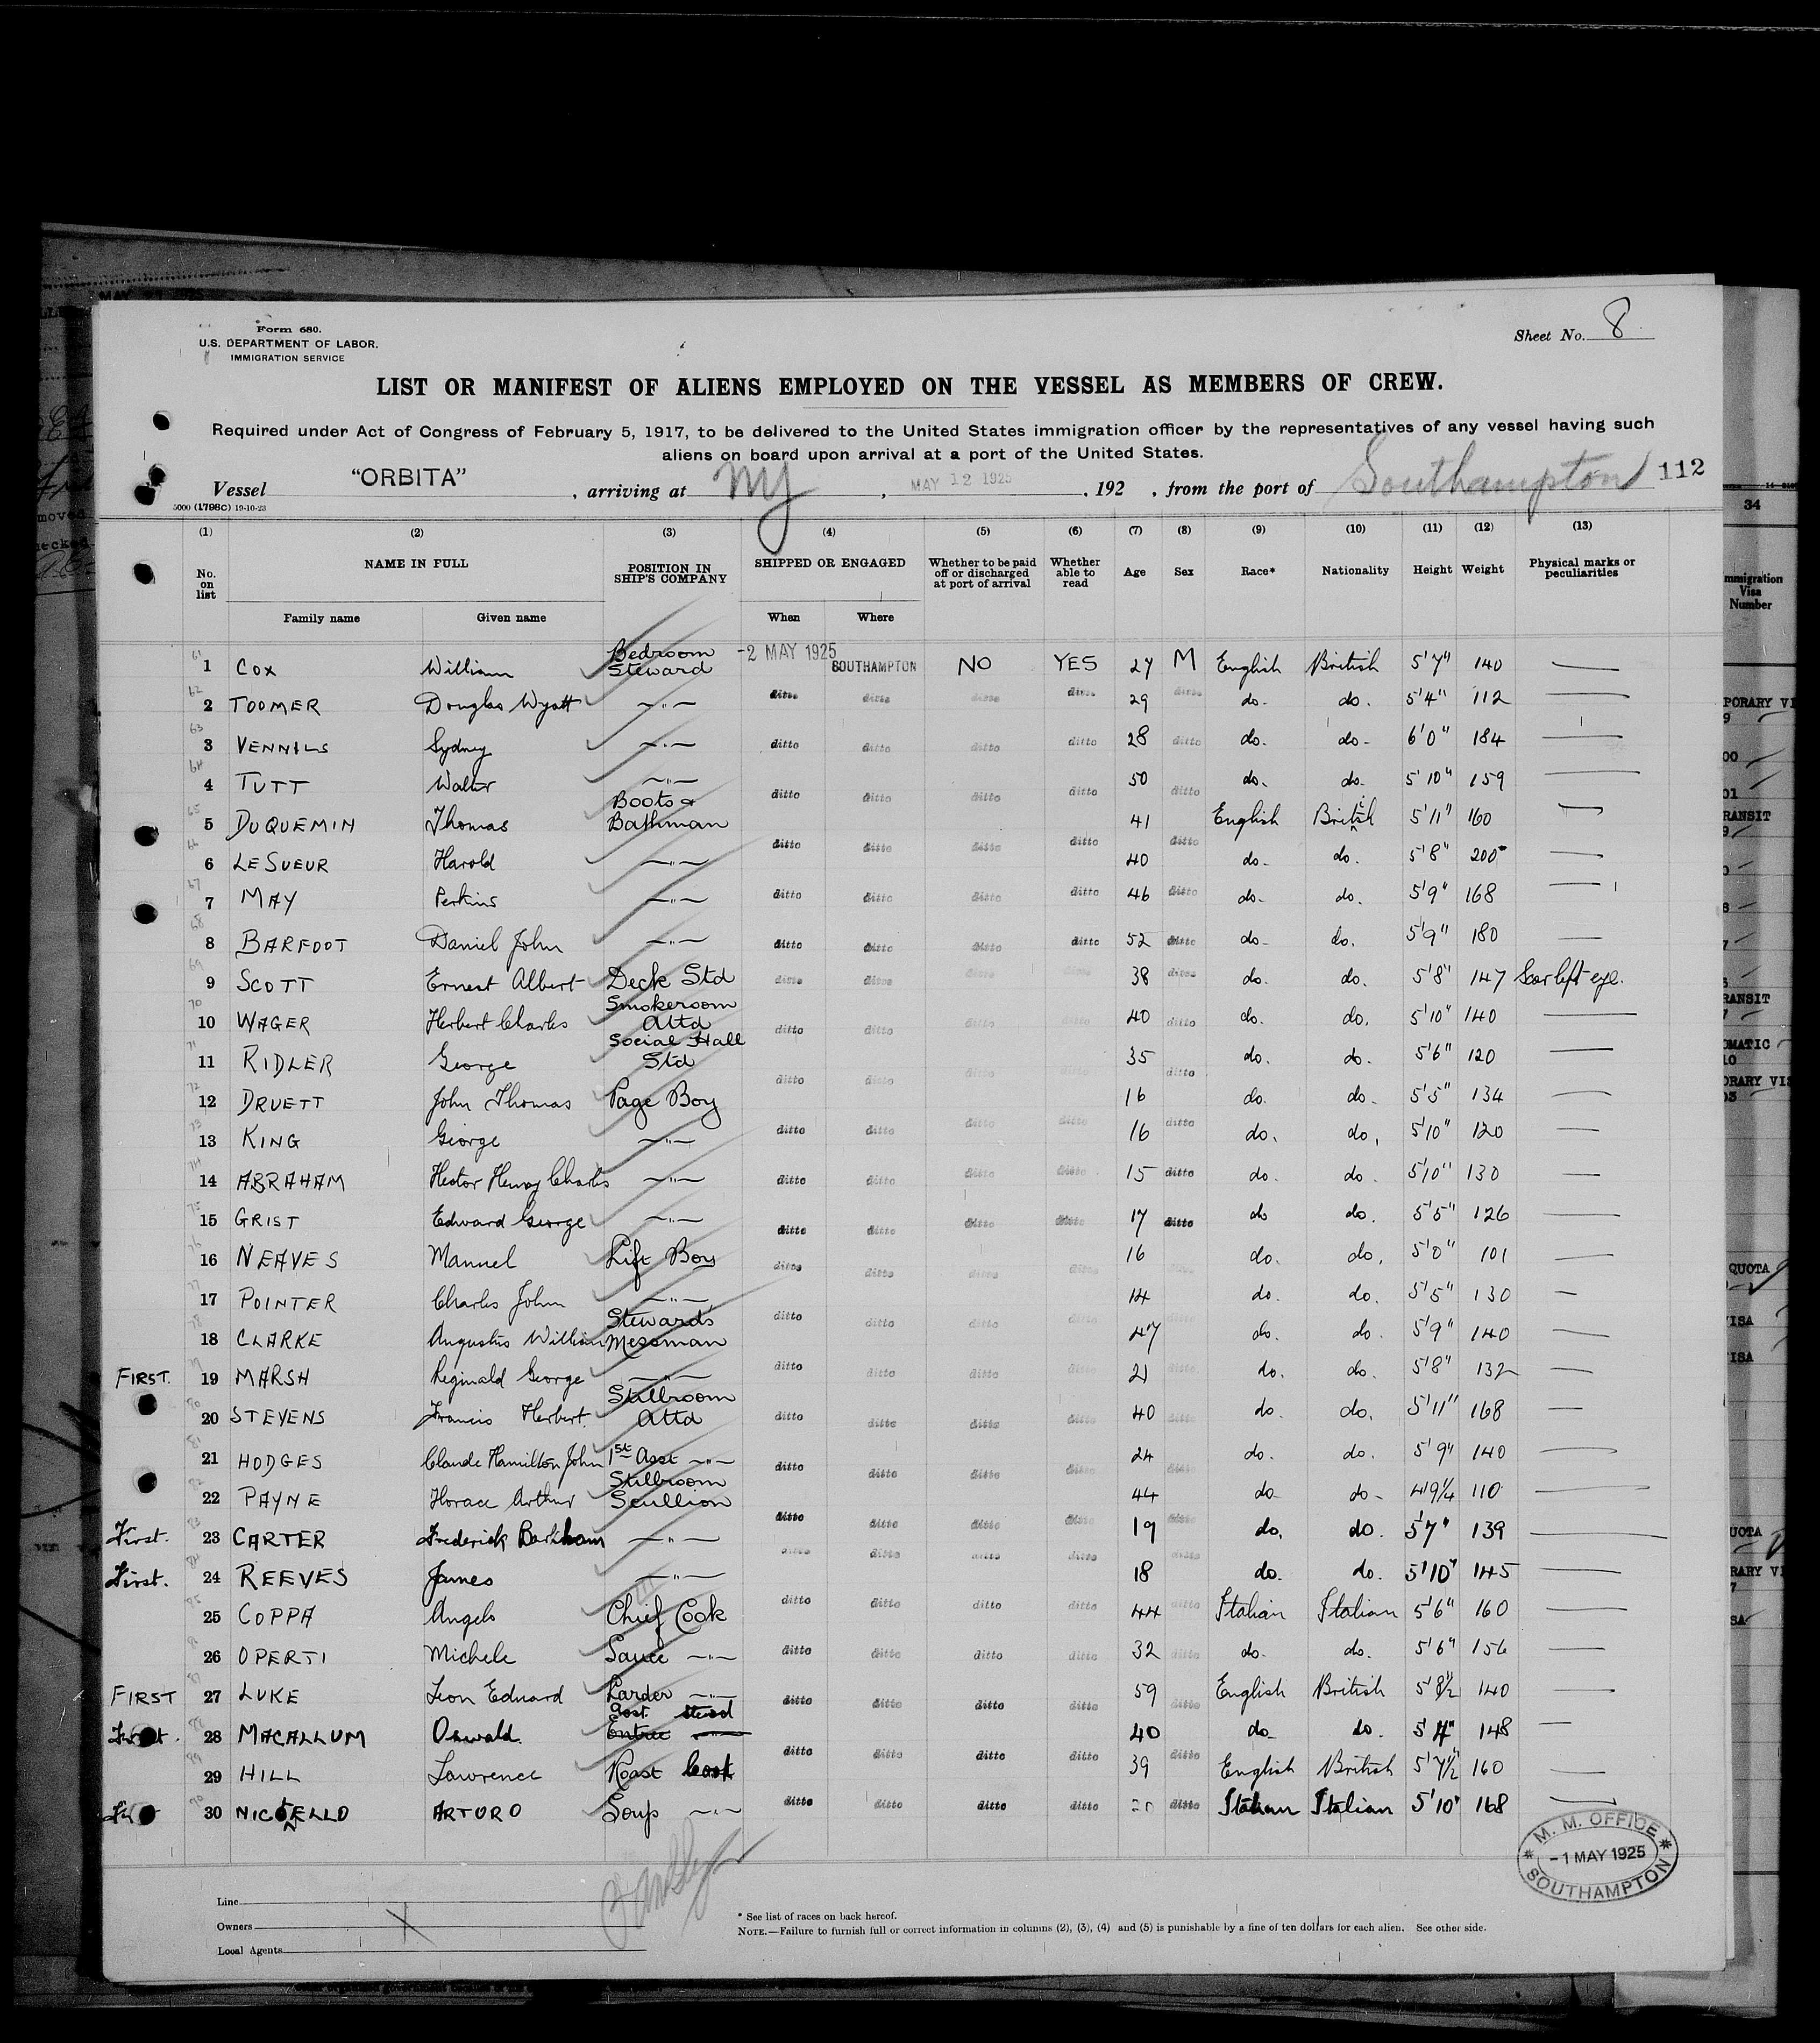 Form 680.
U.S. DEPARTMENT OF LABOR.
IMMIGRATION SERVICE
Sheet No. 8
LIST OR MANIFEST OF ALIENS EMPLOYED ON THE VESSEL AS MEMBERS OF CREW.
Required under Act of Congress of February 5, 1917, to be delivered to the United States immigration officer by the representatives of any vessel having such
aliens on board upon arrival at a port of the United States.
Vessel "ORBITA", arriving at NY, MAY 12 1925, 192 , from the port of Southampton 112
5000 (1798C) 19-10-23
(1) (2) (3) (4) (5) (6) (7) (8) (9) (10) (11) (12) (13)
No. on list NAME IN FULL POSITION IN SHIP'S COMPANY SHIPPED OR ENGAGED Whether to be paid off or discharged at port of arrival Whether able to read Age Sex Race* Nationality Height Weight Physical marks or peculiarities
Family name Given name When Where
61 1 COX William Bedroom Steward -2 MAY 1925 SOUTHAMPTON NO YES 27 M English British 5'7" 140 —
62 2 TOOMER Douglas Wyatt —"— ditto ditto ditto ditto 29 ditto do. do. 5'4" 112 —
63 3 VENNILS Sydney —"— ditto ditto ditto ditto 28 ditto do. do. 6'0" 184 —
64 4 TUTT Walter —"— ditto ditto ditto ditto 50 ditto do. do. 5'10" 159 —
65 5 DUQUEMIN Thomas Boots & Bathman ditto ditto ditto ditto 41 ditto English British 5'11" 160 —
66 6 LE SUEUR Harold —"— 40 do. do. 5'8" 200 —
67 7 MAY Perkins —"— ditto ditto ditto ditto 46 ditto do. do. 5'9" 168 —
68 8 BARFOOT Daniel John —"— ditto ditto ditto ditto 52 ditto do. do. 5'9" 180 —
69 9 SCOTT Ernest Albert Deck Std ditto ditto ditto ditto 38 ditto do. do. 5'8" 147 Scar left eye.
70 10 WAGER Herbert Charles Smokeroom Attd ditto ditto ditto ditto 40 ditto do. do. 5'10" 140 —
71 11 RIDLER George Social Hall Std ditto ditto ditto ditto 35 ditto do. do. 5'6" 120 —
72 12 DRUETT John Thomas Page Boy 16 do. do. 5'5" 134 —
73 13 KING George —"— ditto ditto ditto ditto 16 ditto do. do. 5'10" 120 —
74 14 ABRAHAM Hector Henry Charles —"— ditto ditto ditto ditto 15 ditto do. do. 5'10" 130 —
75 15 GRIST Edward George —"— ditto ditto ditto ditto 17 ditto do do. 5'5" 126 —
76 16 NEAVES Manuel Lift Boy ditto ditto ditto ditto 16 ditto do. do. 5'0" 101 —
77 17 POINTER Charles John —"— ditto ditto ditto ditto 14 ditto do. do. 5'5" 130 —
78 18 CLARKE Augustus William Stewards' Messman 47 do. do. 5'9" 140 —
FIRST. 79 19 MARSH Reginald George —"— ditto ditto ditto ditto 21 ditto do. do. 5'8" 132 —
80 20 STEVENS Francis Herbert. Stillroom Attd ditto ditto ditto ditto 40 ditto do. do. 5'11" 168 —
81 21 HODGES Claude Hamilton John 1st Asst —"— ditto ditto ditto ditto 24 ditto do. do. 5'9" 140 —
82 22 PAYNE Horace Arthur Stillroom Scullion 44 do do 4'9¼ 110 —
First. 83 23 CARTER Frederick —"— ditto ditto ditto ditto 19 ditto do. do. 5'7" 139 —
First. 84 24 REEVES James —"— ditto ditto ditto ditto 18 ditto do. do. 5'10" 145 —
85 25 COPPA Angelo Chief Cook ditto ditto ditto ditto 44 ditto Italian Italian 5'6" 160 —
26 OPERTI Michele Sauce —"— ditto ditto ditto ditto 32 ditto do. do. 5'6" 156 —
FIRST 87 27 LUKE Leon Edward Larder —"— ditto ditto ditto ditto 59 ditto English British 5'8½ 140 —
First. 88 28 MACALLUM Oswald. Asst. Stewd Entree 40 do do. 5'4" 148 —
89 29 HILL Lawrence Roast Cook ditto ditto ditto ditto 39 ditto English British 5'7½ 160 —
90 30 ARTURO Soup —"— ditto ditto ditto ditto 20 ditto Italian Italian 5'10" 168 —
M. M. OFFICE
-1 MAY 1925
SOUTHAMPTON
Line
Owners X
Local Agents
* See list of races on back hereof.
NOTE.—Failure to furnish full or correct information in columns (2), (3), (4) and (5) is punishable by a fine of ten dollars for each alien. See other side.
34
Immigration
Visa
Number